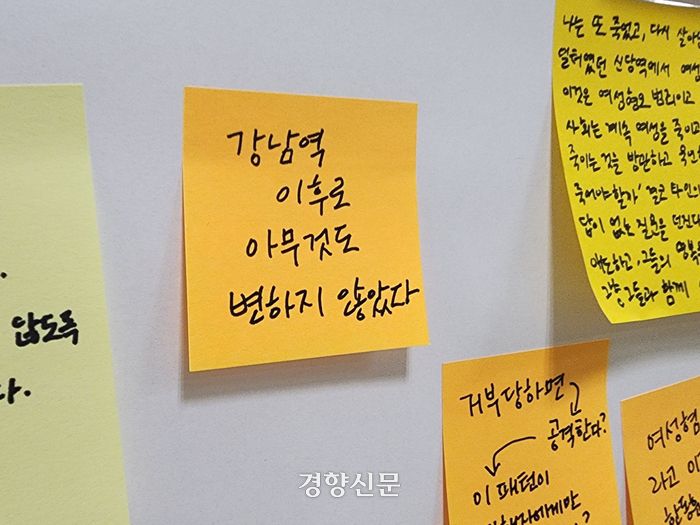 강남역
이후로
아무것도
변하지 않았다
나는 또 죽었고, 다시
일터였던 신당역에서
이것은 여성혐오 범죄이고
사회는 계속 여성을 죽이고
죽이는 것을 방관하고
죽어야할까' 결코 타인의
답이 없는 질문을 던진다
애도하고, 그들의
그냥 그들과 함께
않도록
다.
거부당하면
공격한다?
이 패턴이
여성혐
라고
경향신문